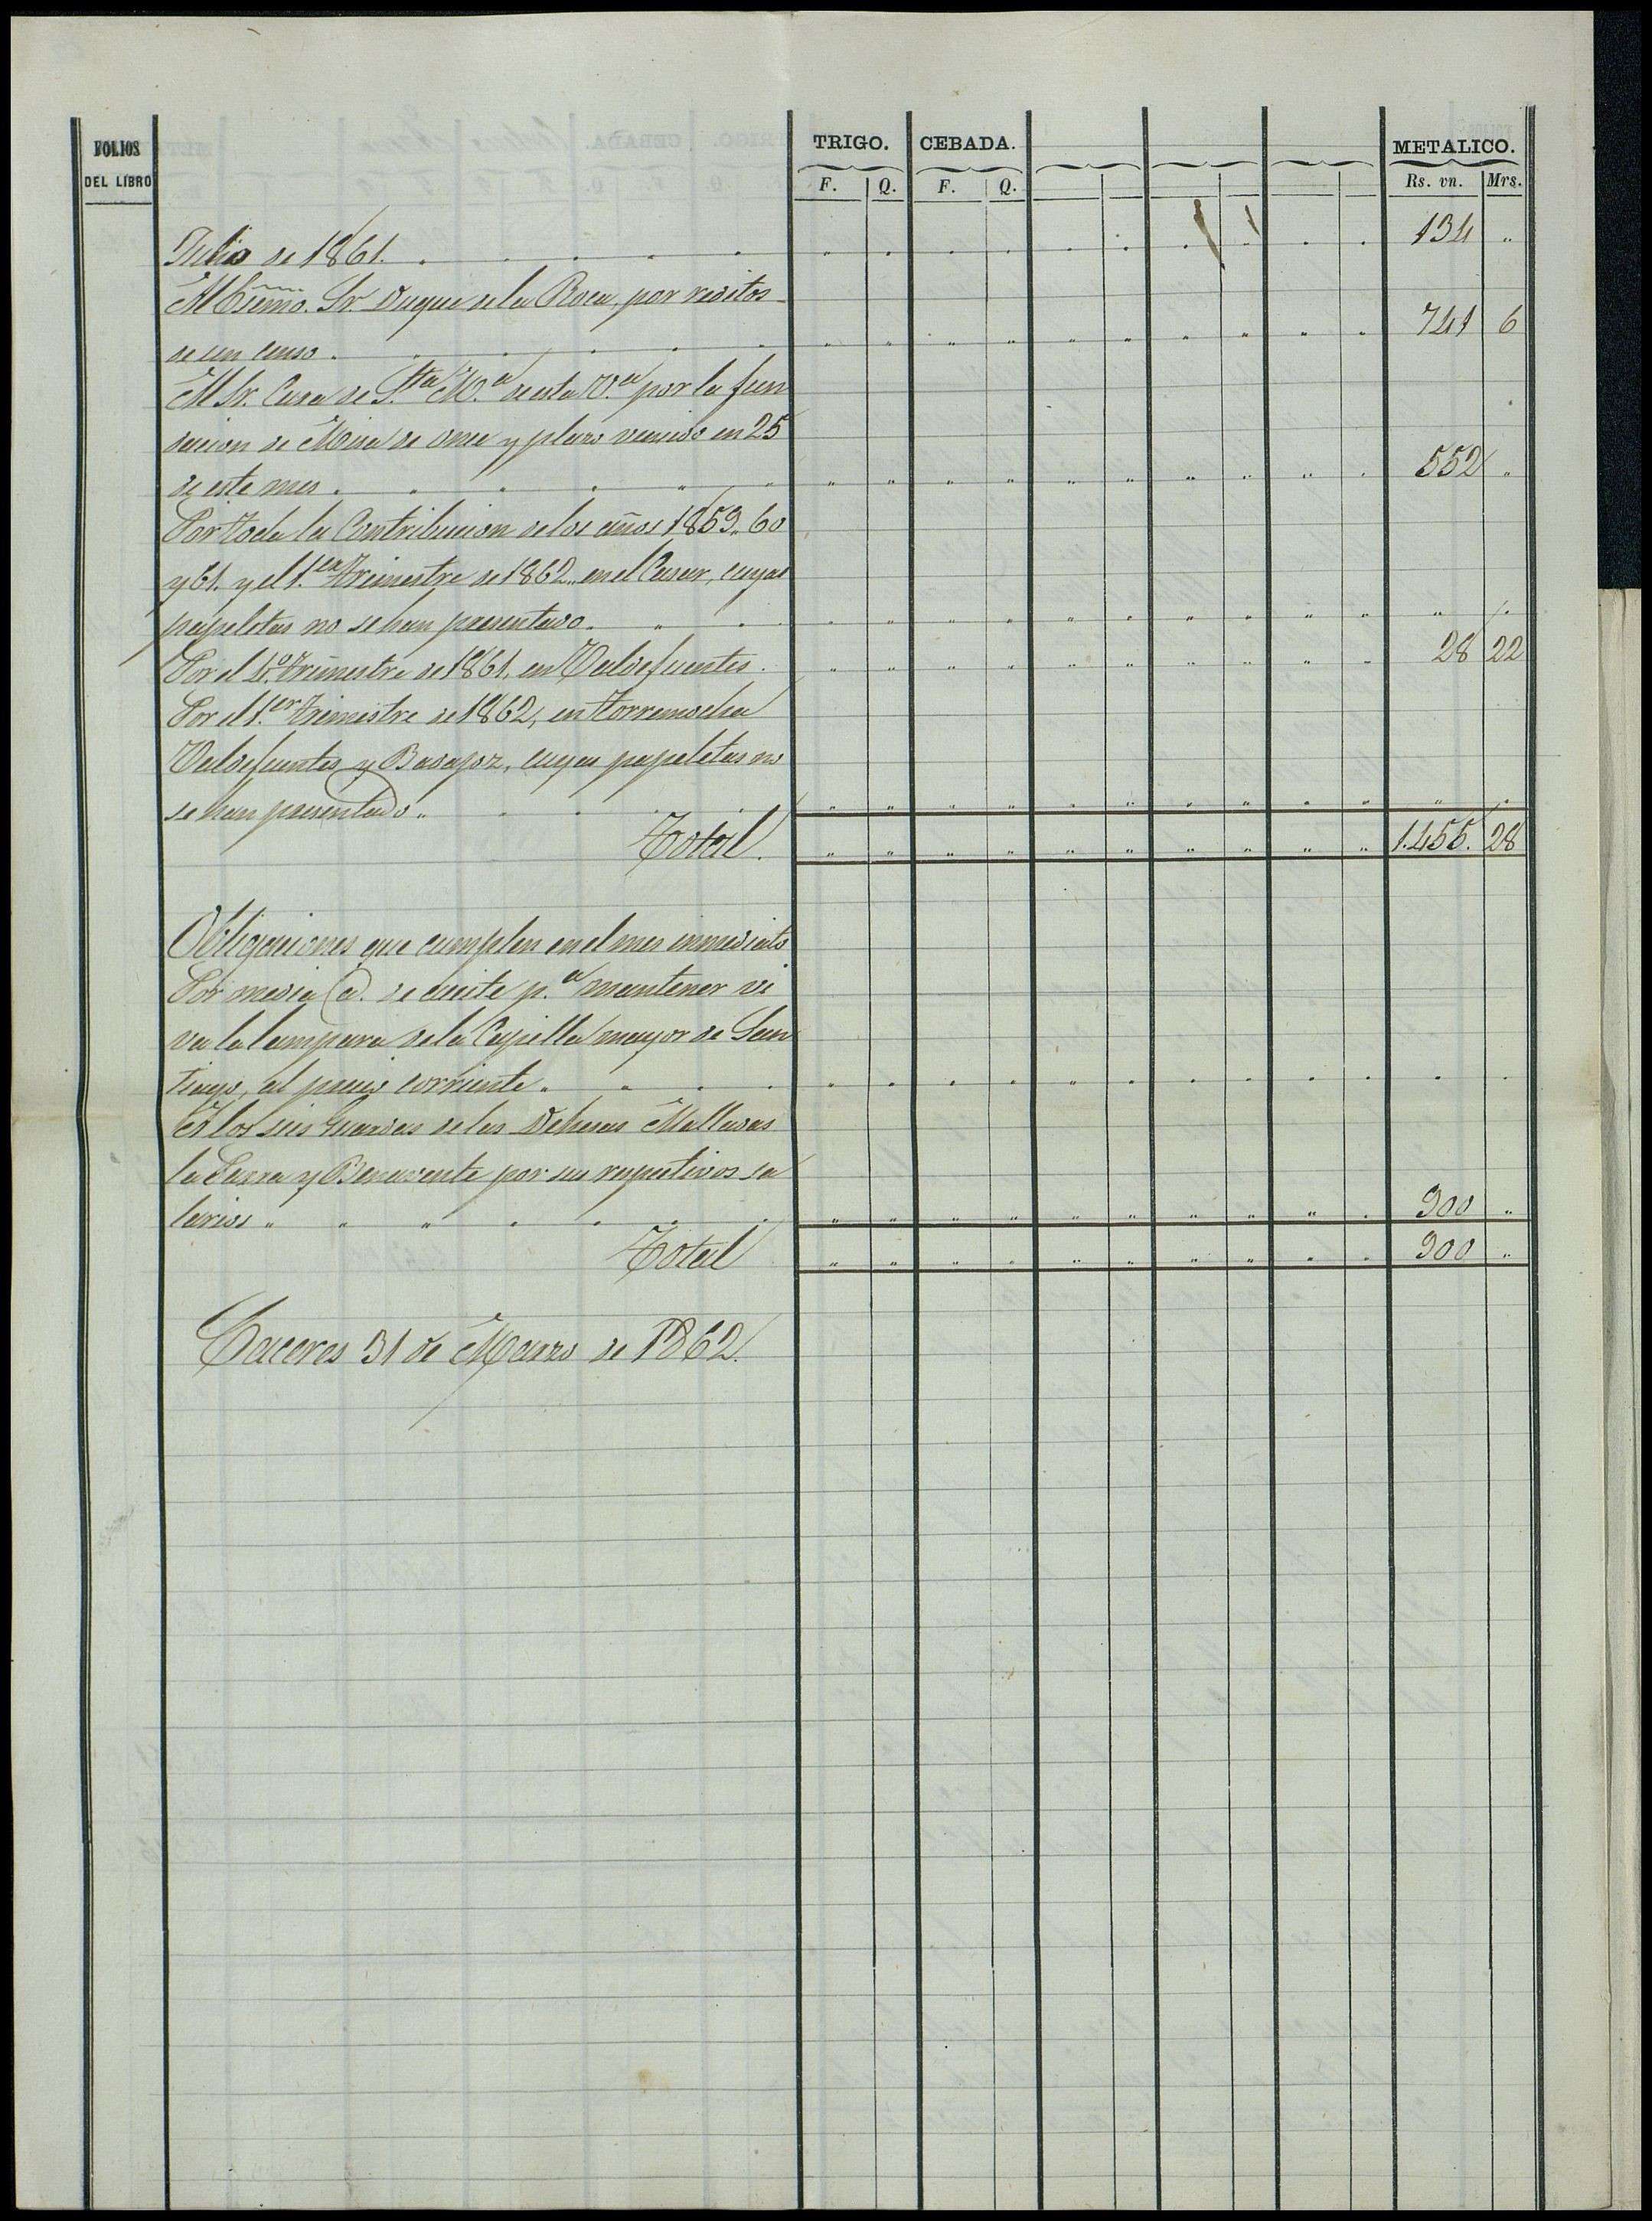 FOLIOS DEL LIBRO
TRIGO. CEBADA. METALICO.
F. Q. F. Q. Rs. vn. Mrs.
Julio de 1861. 134 "
Al Excmo. Sr. Duque de la Roca, por reditos
de un censo. 741 6
Al Sr. Cura de Sta. Ma. de esta Va. por la fun
dacion de Misa de once y plazo vencido en 25
de este mes. 552 "
Por toda la Contribucion de los años 1859. 60
y 61. y el 1.er trimestre de 1862. en el Casar, cuyas
papeletas no se han presentado. " "
Por el 4.º trimestre de 1861, en Valdefuentes. 28 22
Por el 1.er trimestre de 1862, en Torremocha
Valdefuentes y Badajoz, cuyas papeletas no
se han presentado. " "
Total. 1.455. 28
Obligaciones que cumplen en el mes inmediato
Por media @. de aceite p.a mantener vi
va la lampara de la Capilla mayor de San
tiago, al precio corriente.
A los seis Guardas de las Dehesas Malladas
la Parra y Benavente por sus respectivos sa
larios " 900 "
Total 900 "
Caceres 31 de Marzo de 1862.